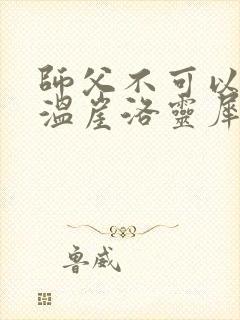 師父不可以
溫崖洛靈犀
魯威